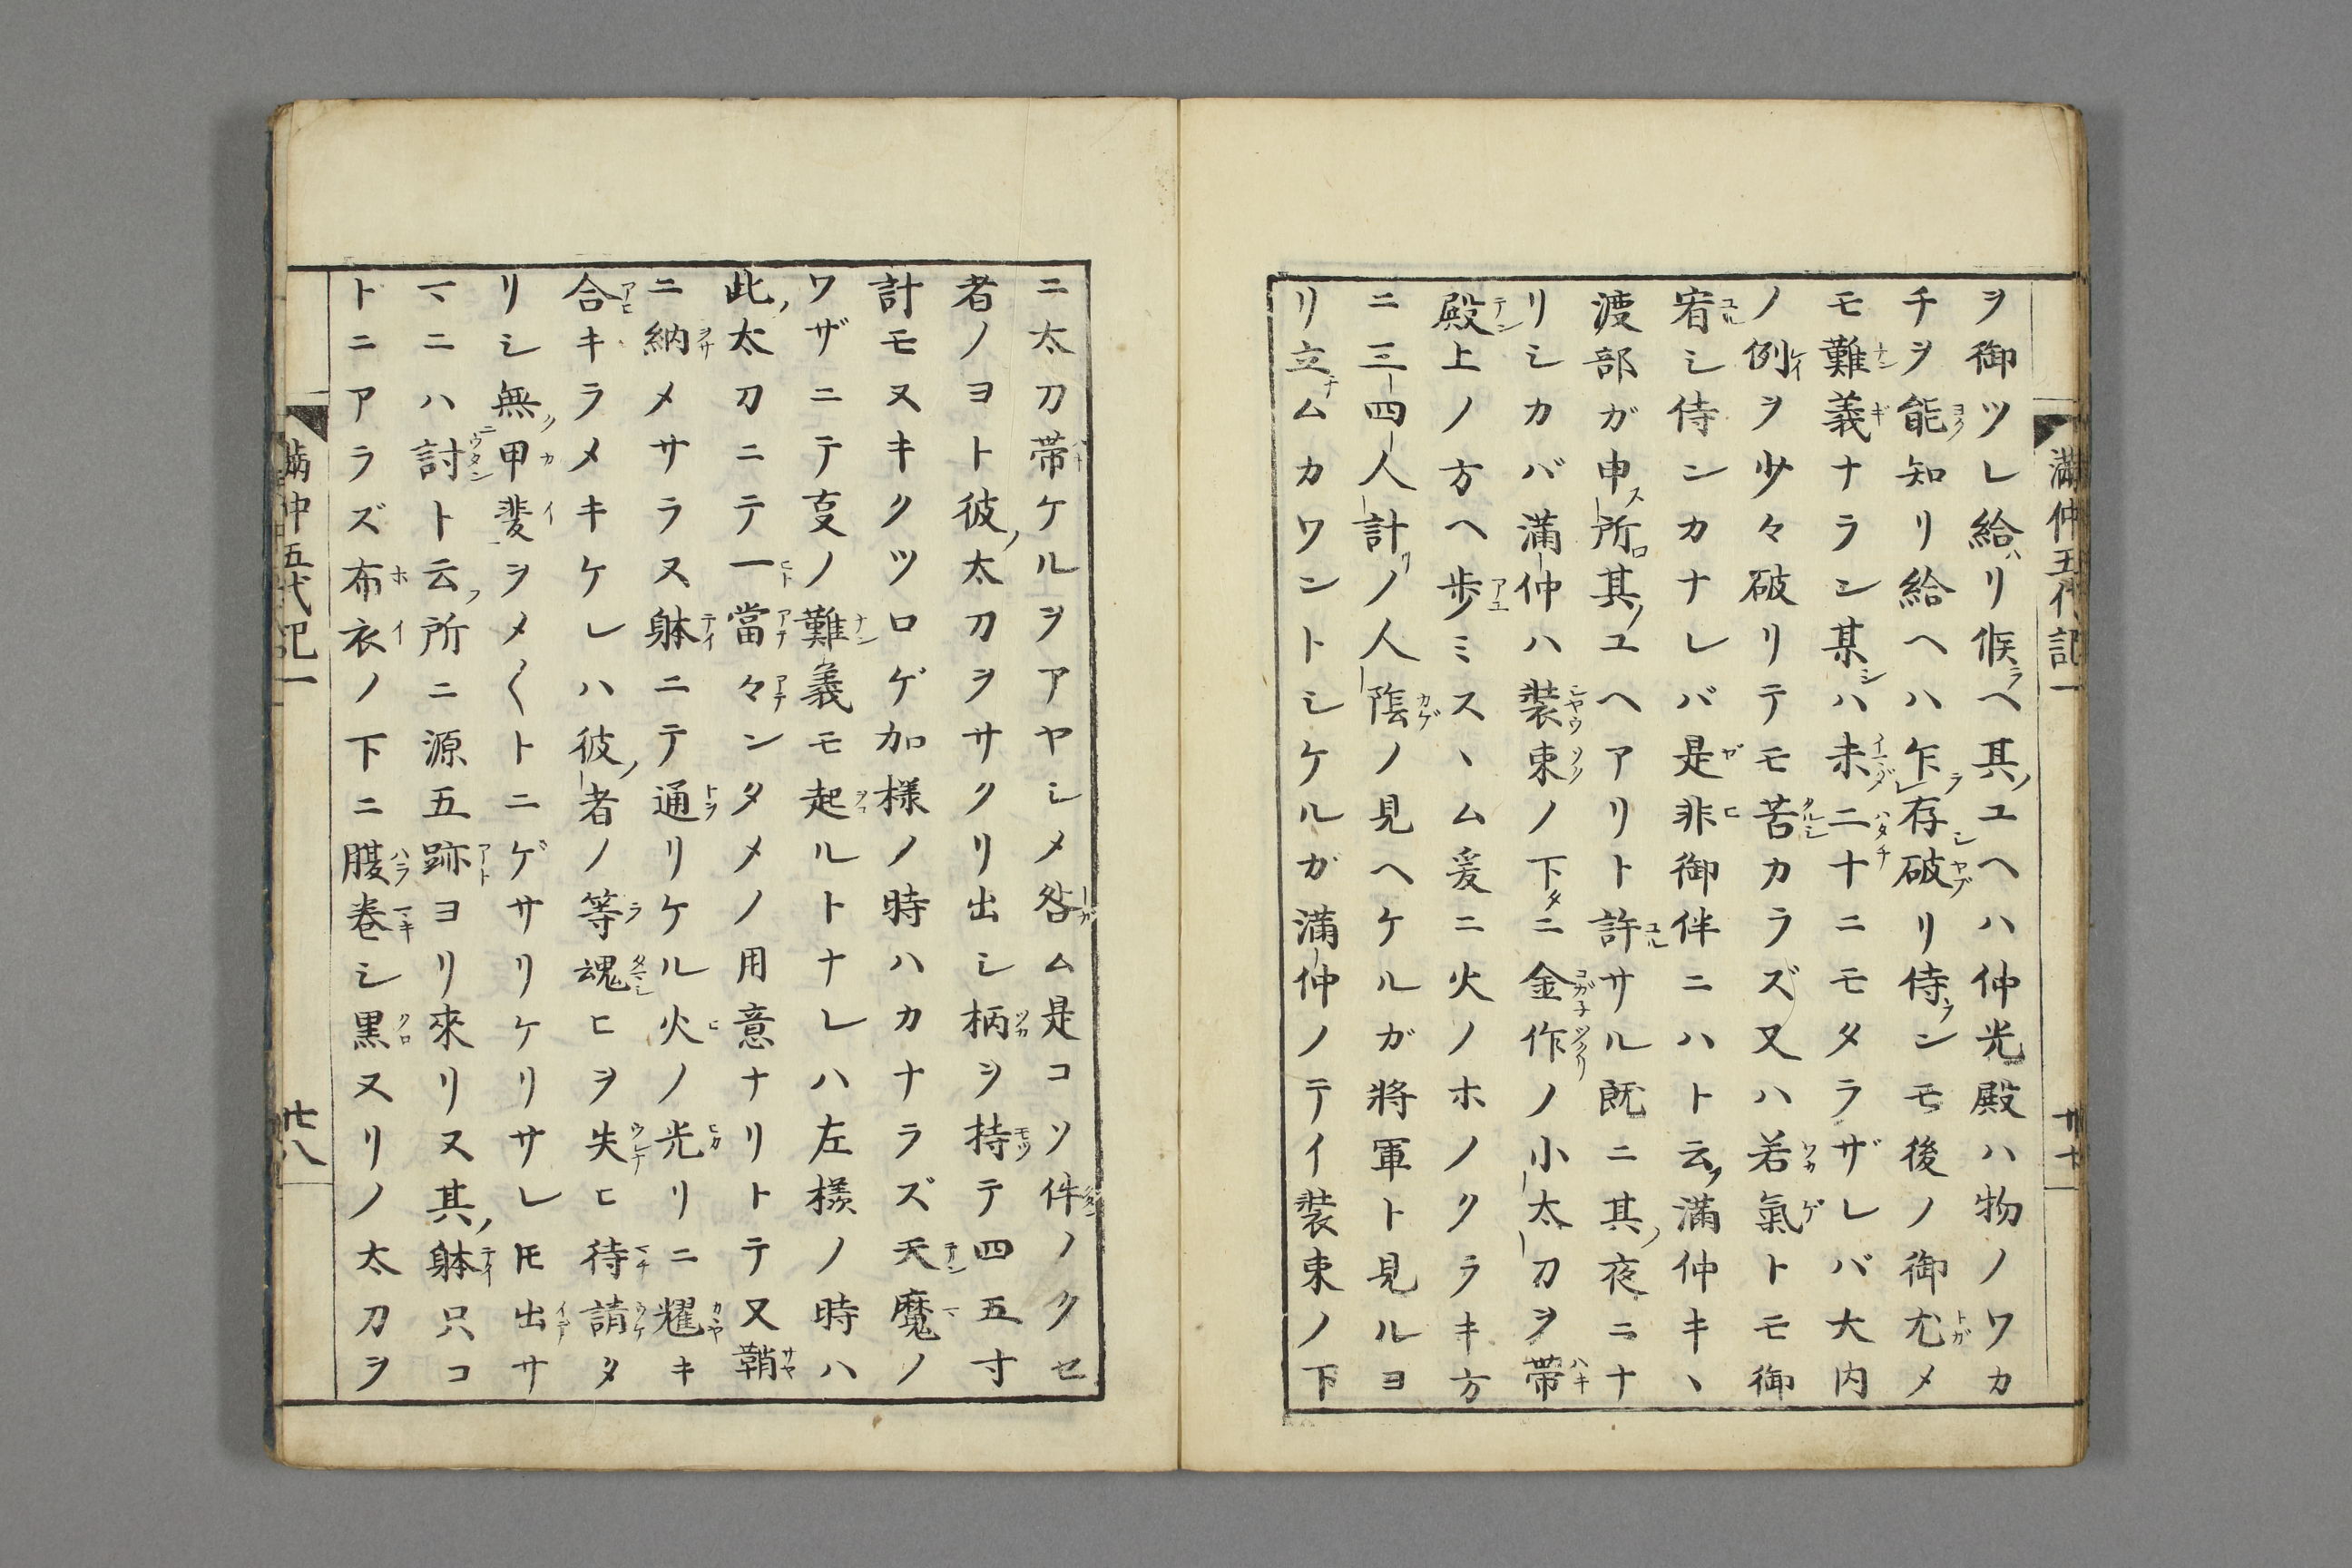 満仲五代記一
廿七
ヲ御ツレ給ハリ候ラヘ其ノユヘハ仲光殿ハ物ノワカ
チヲ能知リ給ヘハ乍ラ存シ破リ侍ランモ後ノ御尤メ
モ難義ナラン某シハ未二十ニモタラザレバ大内
ノ例ヲ少々破リテモ苦カラズ又ハ若氣トモ御
宥シ侍ンカナレバ是非御伴ニハト云フ満仲キヽ
渡部ガ申ス所ロ其ノユヘアリト許サル既ニ其ノ夜ニナ
リシカバ満仲ハ装束ノ下タニ金作ノ小太刀ヲ帯
殿上ノ方ヘ歩ミスヽム爰ニ火ノホノクラキ方
ニ三四人計リノ人陰ノ見ヘケルガ將軍ト見ルヨ
リ立チムカワントシケルガ満仲ノテイ装束ノ下
ニ太刀帯ケルヲアヤシメ咎ム是コソ件ノクセ
者ノヨト彼ノ太刀ヲサクリ出シ柄ヲ持テ四五寸
計モヌキクツロゲ加様ノ時ハカナラズ天魔ノ
ワザニテ亥ノ難義モ起ルトナレハ左様ノ時ハ
此ノ太刀ニテ一當々ンタメノ用意ナリトテ又鞘
ニ納メサラヌ躰ニテ通リケル火ノ光リニ耀キ
合キラメキケレハ彼ノ者ノ等魂ヒヲ失ヒ待請タ
リシ無甲斐ヲメ〱トニゲサリケリサレ𪜈出サ
マニハ討ト云フ所ニ源五跡ヨリ來リヌ其ノ躰只コ
トニアラズ布衣ノ下ニ腹巻シ黒ヌリノ太刀ヲ
満仲五代記一
廿八